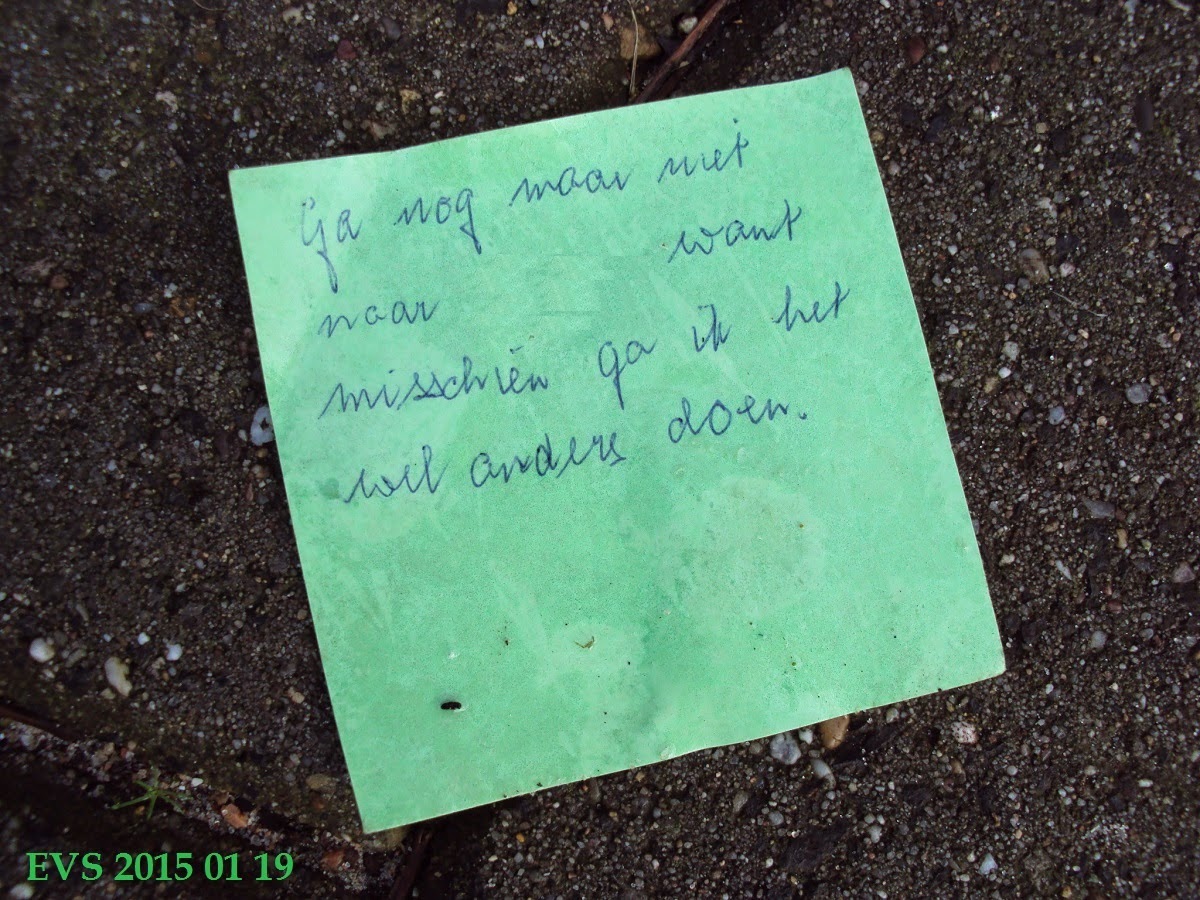 Ga nog maar niet
naar want
misschien ga ik het
wel anders doen.
EVS 2015 01 19